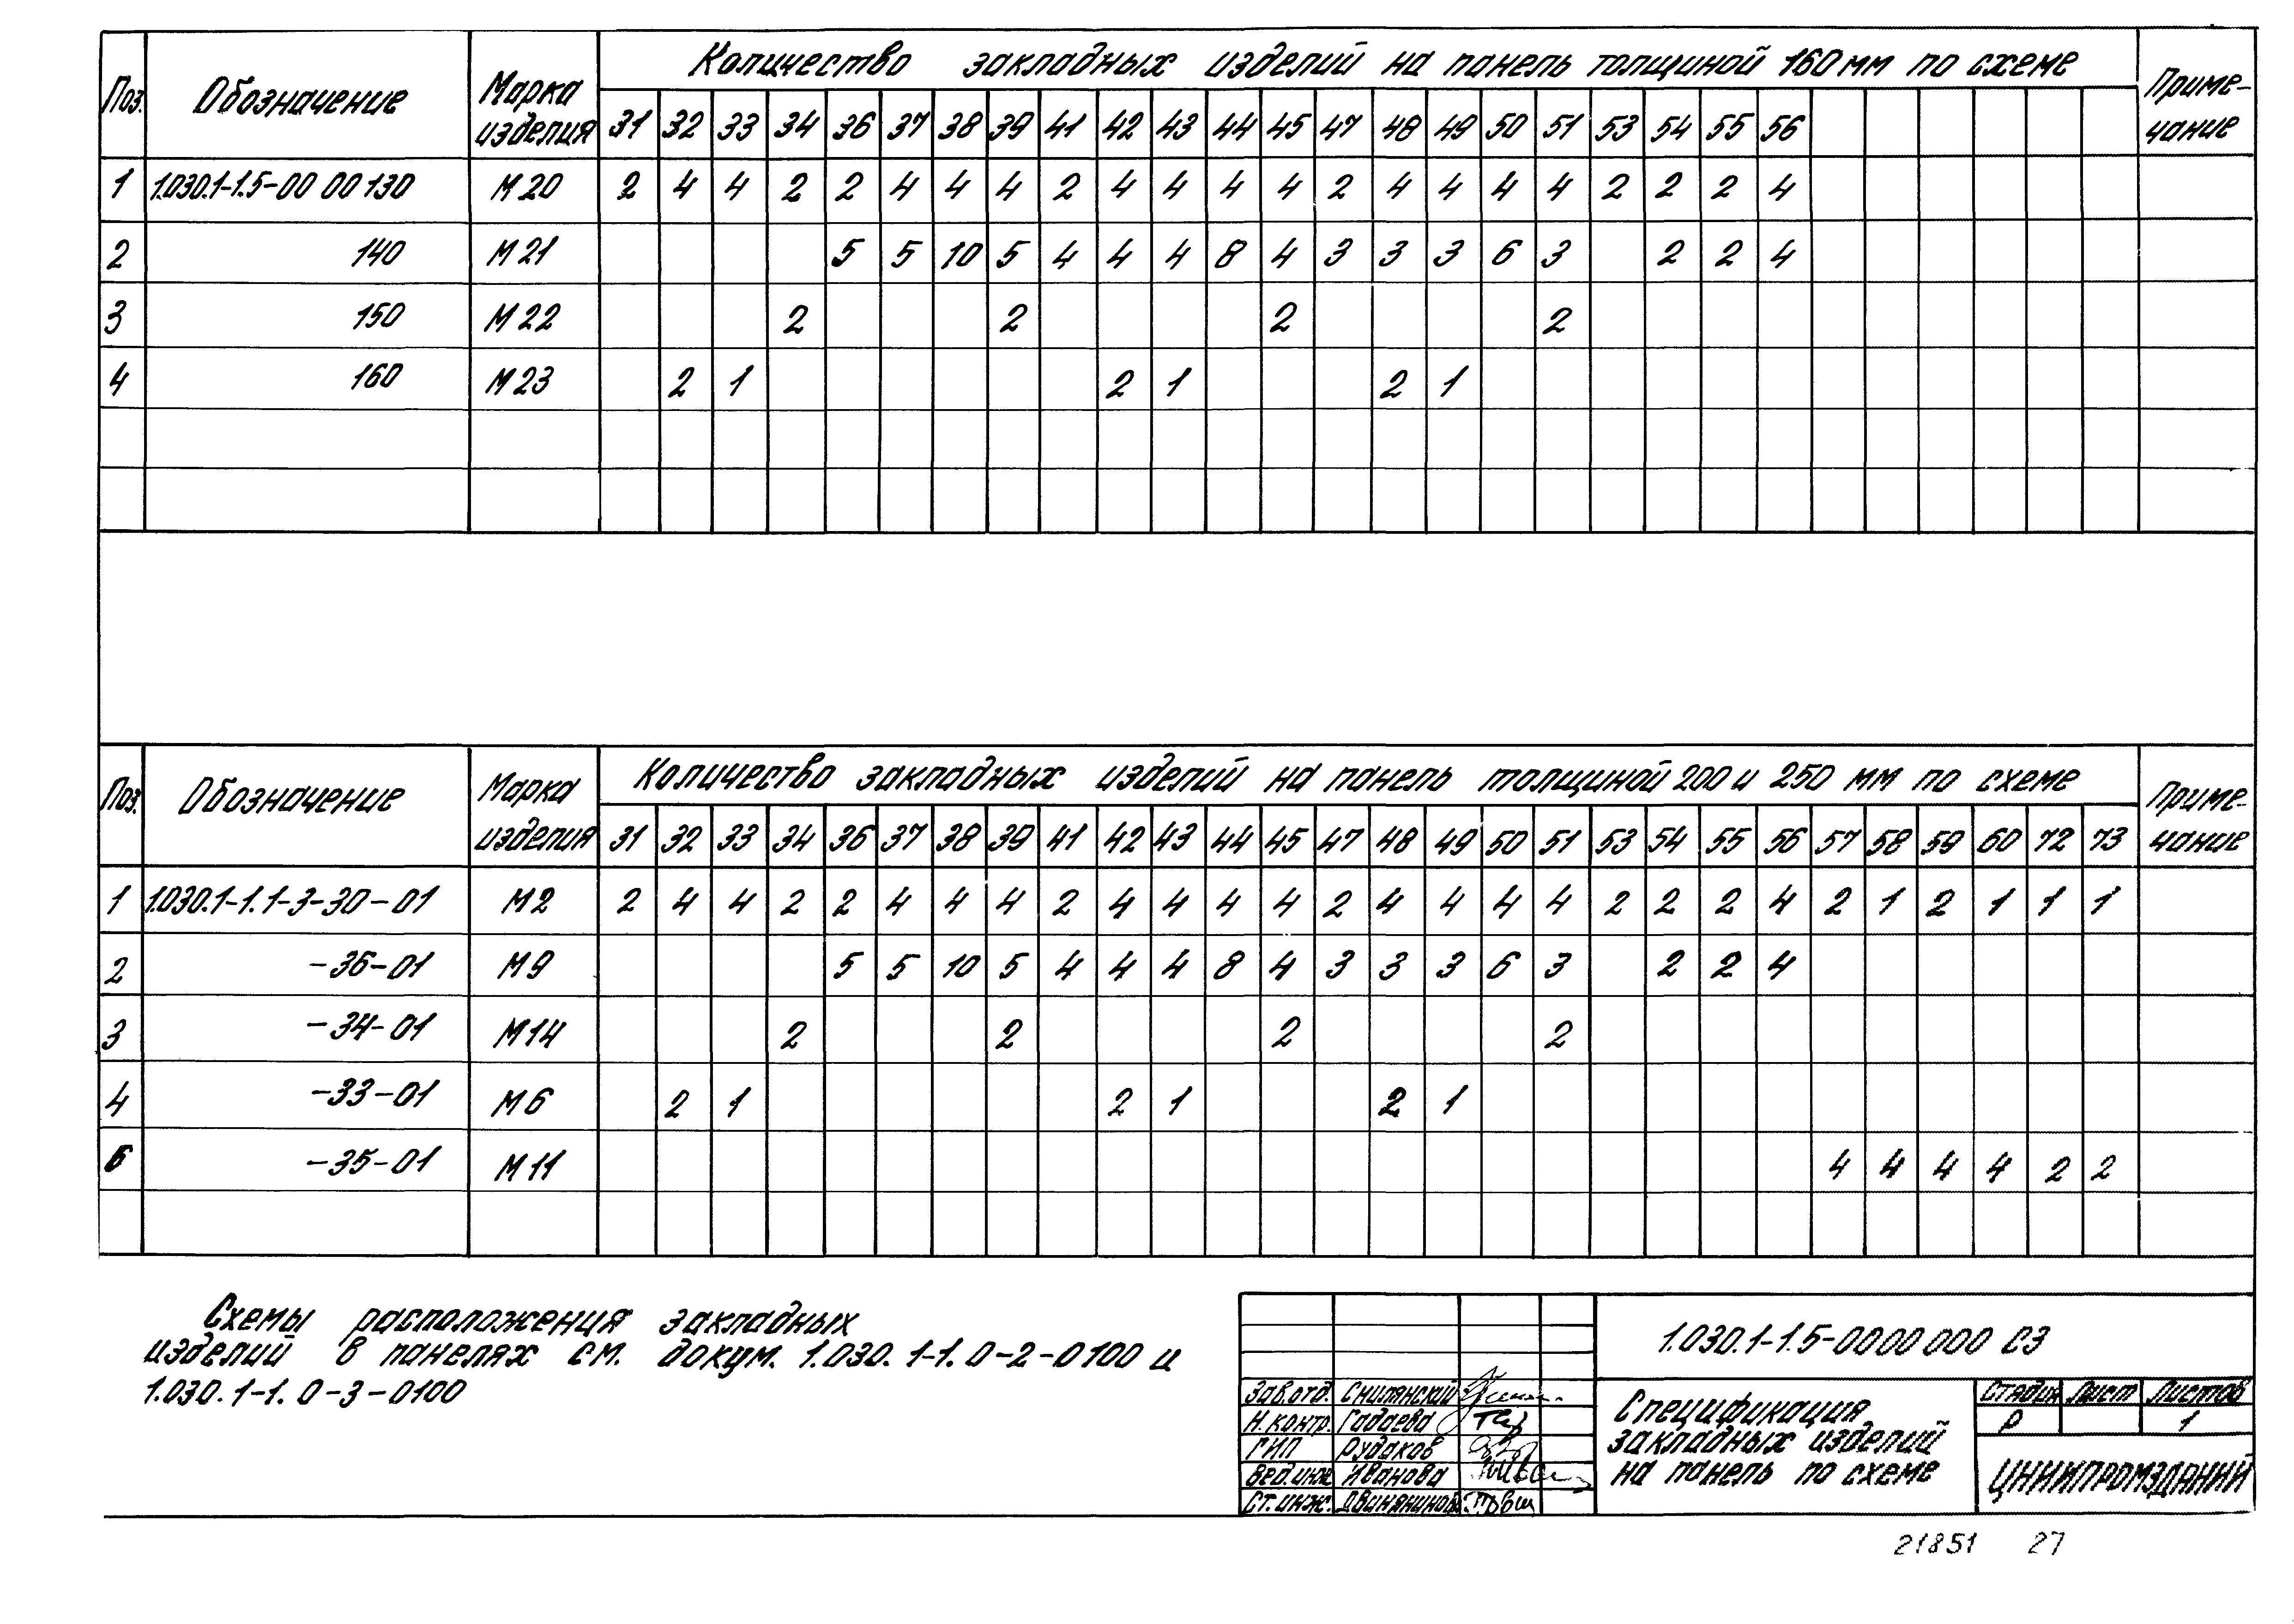 Поз. Обозначение Марка изделия Количество закладных изделий на панель толщиной 160 мм по схеме Приме-чание
31 32 33 34 36 37 38 39 41 42 43 44 45 47 48 49 50 51 53 54 55 56
1 1.030.1-1.5-00 00 130 М20 2 4 4 2 2 4 4 4 2 4 4 4 4 2 4 4 4 4 2 2 2 4
2 140 М21 5 5 10 5 4 4 4 8 4 3 3 3 6 3 2 2 4
3 150 М22 2 2 2 2
4 160 М23 2 1 2 1 2 1
Поз. Обозначение Марка изделия Количество закладных изделий на панель толщиной 200 и 250 мм по схеме Приме-чание
31 32 33 34 36 37 38 39 41 42 43 44 45 47 48 49 50 51 53 54 55 56 57 58 59 60 72 73
1 1.030.1-1.1-3-30-01 М2 2 4 4 2 2 4 4 4 2 4 4 4 4 2 4 4 4 4 2 2 2 4 2 1 2 1 1 1
2 -36-01 М9 5 5 10 5 4 4 4 8 4 3 3 3 6 3 2 2 4
3 -34-01 М14 2 2 2 2
4 -33-01 М6 2 1 2 1 2 1
-35-01 М11 4 4 4 4 2 2
Схемы расположения закладных
изделий в панелях см. докум. 1.030.1-1.0-2-0100 и
1.030.1-1.0-3-0100
1.030.1-1.5-0000000 СЗ
Зав.отд. Смилянский
Н.контр. Гадаева
ГИП Рудаков
Вед.инж Иванова
Ст.инж.
Спецификация
закладных изделий
на панель по схеме
Стадия Лист Листов
Р 1
ЦНИИПРОМЗДАНИЙ
21851 27